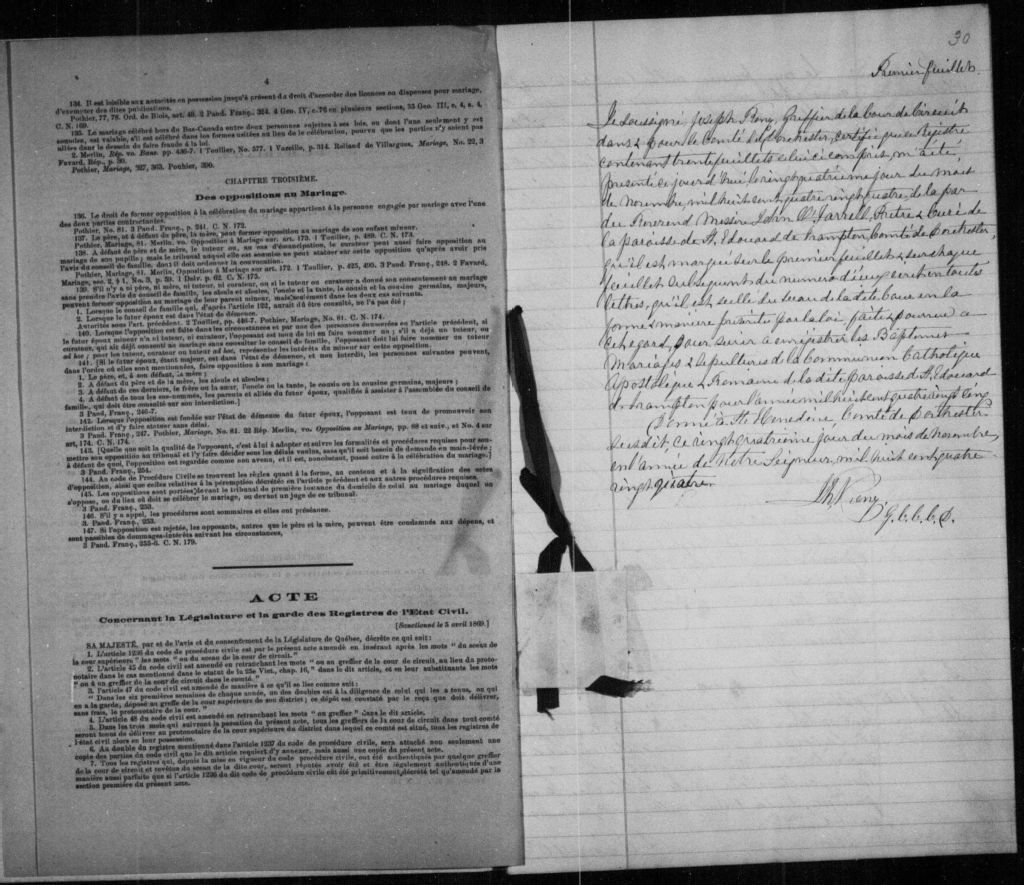 4
134. Il est loisible aux autorités en possession jusqu'à présent du droit d'accorder des licences ou dispenses pour mariage,
d'exempter des dites publications.
Pothier, 77, 78. Ord. de Blois, art. 40, 2 Pand. Franç., 324. 4 Geo. IV, c. 76 en plusieurs sections, 35 Geo. III, c, 4, s. 4,
C. N. 169.
135. Le mariage célébré hors du Bas-Canada entre deux personnes sujettes à ses lois, ou dont l'une seulement y est
soumise, est valable, s'il est célébré dans les formes usitées au lieu de la célébration, pourvu que les parties n'y soient pas
allées dans le dessein de faire fraude à la loi.
2 Merlin, Rép. vo. Bans. pp. 436-7. 1 Toullier, No. 577. 1 Vazeille, p. 314. Rolland de Villargues, Mariage, No. 22, 3
Favard, Rép., p. 30.
Pothier, Mariage, 327, 363. Pouhier, 390.
CHAPITRE TROISIÈME.
Des oppositions au Mariage.
136. Le droit de former opposition à la célébration du mariage appartient à la personne engagée par mariage avec l'une
des deux parties contractantes.
Pothier, No. 81. 3 Pand. Franç., p. 241. C. N. 172.
137. Le père, et à défaut du père, la mère, peut former opposition au mariage de son enfant mineur.
Pothier, Mariage, 81. Merlin, vo. Opposition à Mariage sur art. 173. 1 Toullier, p. 489. C. N. 173.
138. A défaut de père et de mère, le tuteur ou, au cas d'émancipation, le curateur peut aussi faire opposition au
mariage de son pupille; mais le tribunal auquel elle est soumise ne peut statuer sur cette opposition qu'après avoir pris
l'avis du conseil de famille, dont il doit ordonner la convocation.
Pothier, Mariage, 81. Merlin, Opposition à Mariage sur art. 172. 1 Toullier, p. 425, 490. 3 Pand. Franç., 248. 2 Favard,
Mariage, sec. 2, § 1, No. 3, p. 59. 1 Delv. p. 62. C. N. 175.
139. S'il n'y a ni père, ni mère, ni tuteur, ni curateur, ou si le tuteur ou curateur a donné son consentement au mariage
sans prendre l'avis du conseil de famille, les aïeuls et aïeules, l'oncle et la tante, le cousin et la cousine germains, majeurs,
peuvent former opposition au mariage de leur parent mineur, mais seulement dans les deux cas suivants.
1. Lorsque le conseil de famille qui, d'après l'article 122, aurait dû être consulté, ne l'a pas été;
2. Lorsque le futur époux est dans l'état de démence.
Autorités sous l'art. précédent. 2 Toullier, pp. 446-7. Pothier, Mariage, No. 81. C. N. 174.
140. Lorsque l'opposition est faite dans les circonstances et par une des personnes énumérées en l'article précédent, si
le futur époux mineur n'a ni tuteur, ni curateur, l'opposant est tenu de lui en faire nommer un; s'il a déjà un tuteur, ou
curateur, qui ait déjà consenti au mariage sans consulter le conseil de famille, l'opposant doit lui faire nommer un tuteur
ad hoc; pour les tuteur, curateur ou tuteur ad hoc, représenter les intérêts du mineur sur cette opposition.
141. [Si le futur époux, étant majeur, est dans l'état de démence, et non interdit, les personnes suivantes peuvent,
dans l'ordre où elles sont mentionnées, faire opposition à son mariage:
1. Le père, et, à son défaut, la mère;
2. A défaut du père et de la mère, les aïeuls et aïeules;
3. A défaut de ces derniers, le frère ou la sœur, l'oncle ou la tante, le cousin ou la cousine germains, majeurs;
4. A défaut de tous les sus-nommés, les parents et alliés du futur époux, qualifiés à assister à l'assemblée du conseil de
famille, qui doit être consulté sur son interdiction.]
3 Pand. Franç., 246-7.
142. Lorsque l'opposition est fondée sur l'état de démence du futur époux, l'opposant est tenu de promouvoir son
interdiction et d'y faire statuer sans délai.
3 Pand. Franç., 247. Pothier, Mariage, No. 81. 22 Rép. Merlin, vo. Opposition au Mariage, pp. 68 et suiv., et No. 4 sur
art. 174. C. N. 174.
143. [Quelle que soit la qualité de l'opposant, c'est à lui à adopter et suivre les formalités et procédures requises pour sou-
mettre son opposition au tribunal et l'y faire décider sous les délais voulus, sans qu'il soit besoin de demande en main-levée;
à défaut de quoi, l'opposition est regardée comme non avenu, et il est, nonobstant, passé outre à la célébration du mariage.]
3 Pand. Franç., 254.
144. Au Code de Procédure Civile se trouvent les règles quant à la forme, au contenu et à la signification des actes
d'opposition, ainsi que celles relatives à la péremption décrétée en l'article précédent et aux autres procédures requises.
145. Les oppositions sont portées devant le tribunal de première instance du domicile de celui au mariage duquel on
s'oppose, ou du lieu où doit se célébrer le mariage, ou devant un juge de ce tribunal.
3 Pand. Franç., 253.
146. S'il y a appel, les procédures sont sommaires et elles ont préséance.
3. Pand. Franç., 253.
147. Si l'opposition est rejetée, les opposants, autres que le père et la mère, peuvent être condamnés aux dépens, et
sont passibles de dommages-intérêts suivant les circonstances,
3 Pand. Franç., 255-6. C. N. 179.
ACTE
Concernant la Législature et la garde des Registres de l'Etat Civil.
[Sanctionné le 5 avril 1869.]
SA MAJESTÉ, par et de l'avis et du consentement de la Législature de Québec, décrète ce qui suit:
1. L'article 1236 du code de procédure civile est par le présent acte amendé en insérant après les mots "du sceau de
la cour supérieure" les mots "ou du sceau de la cour de circuit."
2. L'article 45 du code civil est amendé en retranchant les mots "ou au greffier de la cour de circuit, au lieu du proto-
notaire dans le cas mentionné dans le statut de la 25e Vict., chap. 16," dans le dit article, et en leur substituant les mots
"ou à un greffier de la cour de circuit dans le comté."
3. l'article 47 du code civil est amendé de manière à ce qu'il se lise comme suit:
"Dans les six premières semaines de chaque année, un des doubles est à la diligence de celui qui les a tenus, ou qui
en a la garde, déposé au greffe de la cour supérieure de son district; ce dépôt est constaté par le reçu que doit délivrer,
sans frais, le protonotaire de la cour."
4. L'article 48 du code civil est amendé en retranchant les mots "ou greffier" dans le dit article.
5. Dans les trois mois qui suivront la passation du présent acte, tous les greffiers de la cour de circuit dans tout comté
seront tenus de délivrer au protonotaire de la cour supérieure du district dans lequel ce comté est situé, tous les registres de
l'état civil alors en leur possession.
6. Au double du registre mentionné dans l'article 1237 du code de procédure civile, sera attaché non seulement une
copie des parties du code civil que le dit article requiert d'y annexer, mais aussi une copie du présent acte.
7. Tous les registres qui, depuis la mise en vigueur du code procédure civile, ont été authentiqués par quelque greffier
de la cour de circuit et revêtus du sceau de la dite cour, seront réputés avoir été et être légalement authentiqués d'une
manière aussi parfaite que si l'article 1236 du dit code de procédure civile eût été primitivement décrété tel qu'amendé par la
section première du présent acte.
30
Premier feuillet.
Je soussigné, Joseph Remy, Greffier de la Cour de Circuit
dans & pour le Comté de Dorchester, certifie que ce registre
contenant trente feuillets celui-ci compris, m'a été,
présenté ce jourd'hui le vingt quatrième jour du mois
de Novembre, mil huit cent quatre vingt quatre, de la part
du Révérend Messire John O'Farrell, Prêtre & Curé de
la paroisse de St. Edouard de Frampton, Comté de Dorchester,
qu'il est marqué sur le premier feuillet & sur chaque
feuillet subséquent du numéro d'iceux écrit en toutes
lettres, qu'il est scellé du sceau de la dite Cour en la
forme & manière prescrite par la loi faite & pourvue à
cet égard, pour servir à enregistrer les Baptêmes
Mariages & Sépultures de la Communion Catholique
Apostolique & Romaine de la dite paroisse de St. Edouard
de Frampton pour l'année mil huit cent quatre vingt cinq
Donné à Ste Hénédine, Comté de Dorchester
susdit, ce vingt quatrième jour du mois de Novembre,
en l'année de Notre Seigneur, mil huit cent quatre
vingt quatre.
G. C. C. C. D.